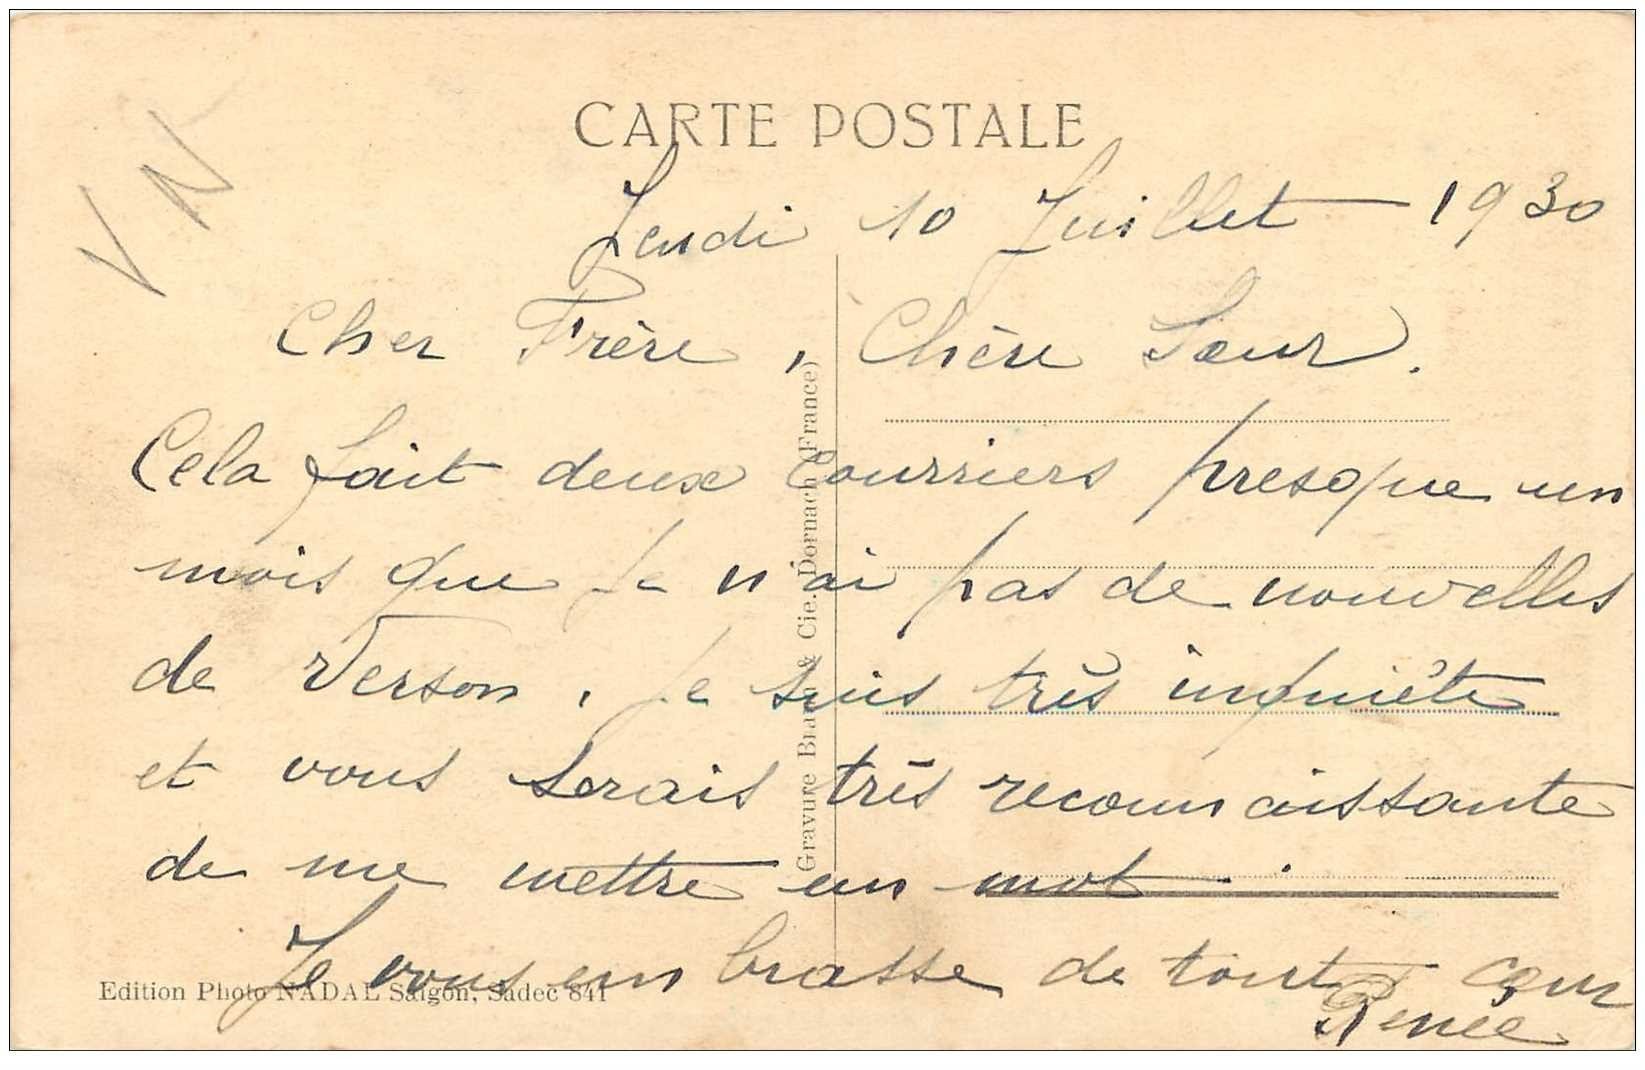 VN
CARTE POSTALE
Jeudi 10 Juillet 1930
Cher Frère, Chère Sœur.
Cela fait deux courriers presque un
mois que je n'ai pas de nouvelles
de Verson, je suis très inquiète
et vous serais très reconnaissante
de me mettre un mot.
Je vous embrasse de tout cœur
Renée
Edition Photo NADAL Saigon, Sadec 841
Gravure Braun & Cie. Dornach (France)